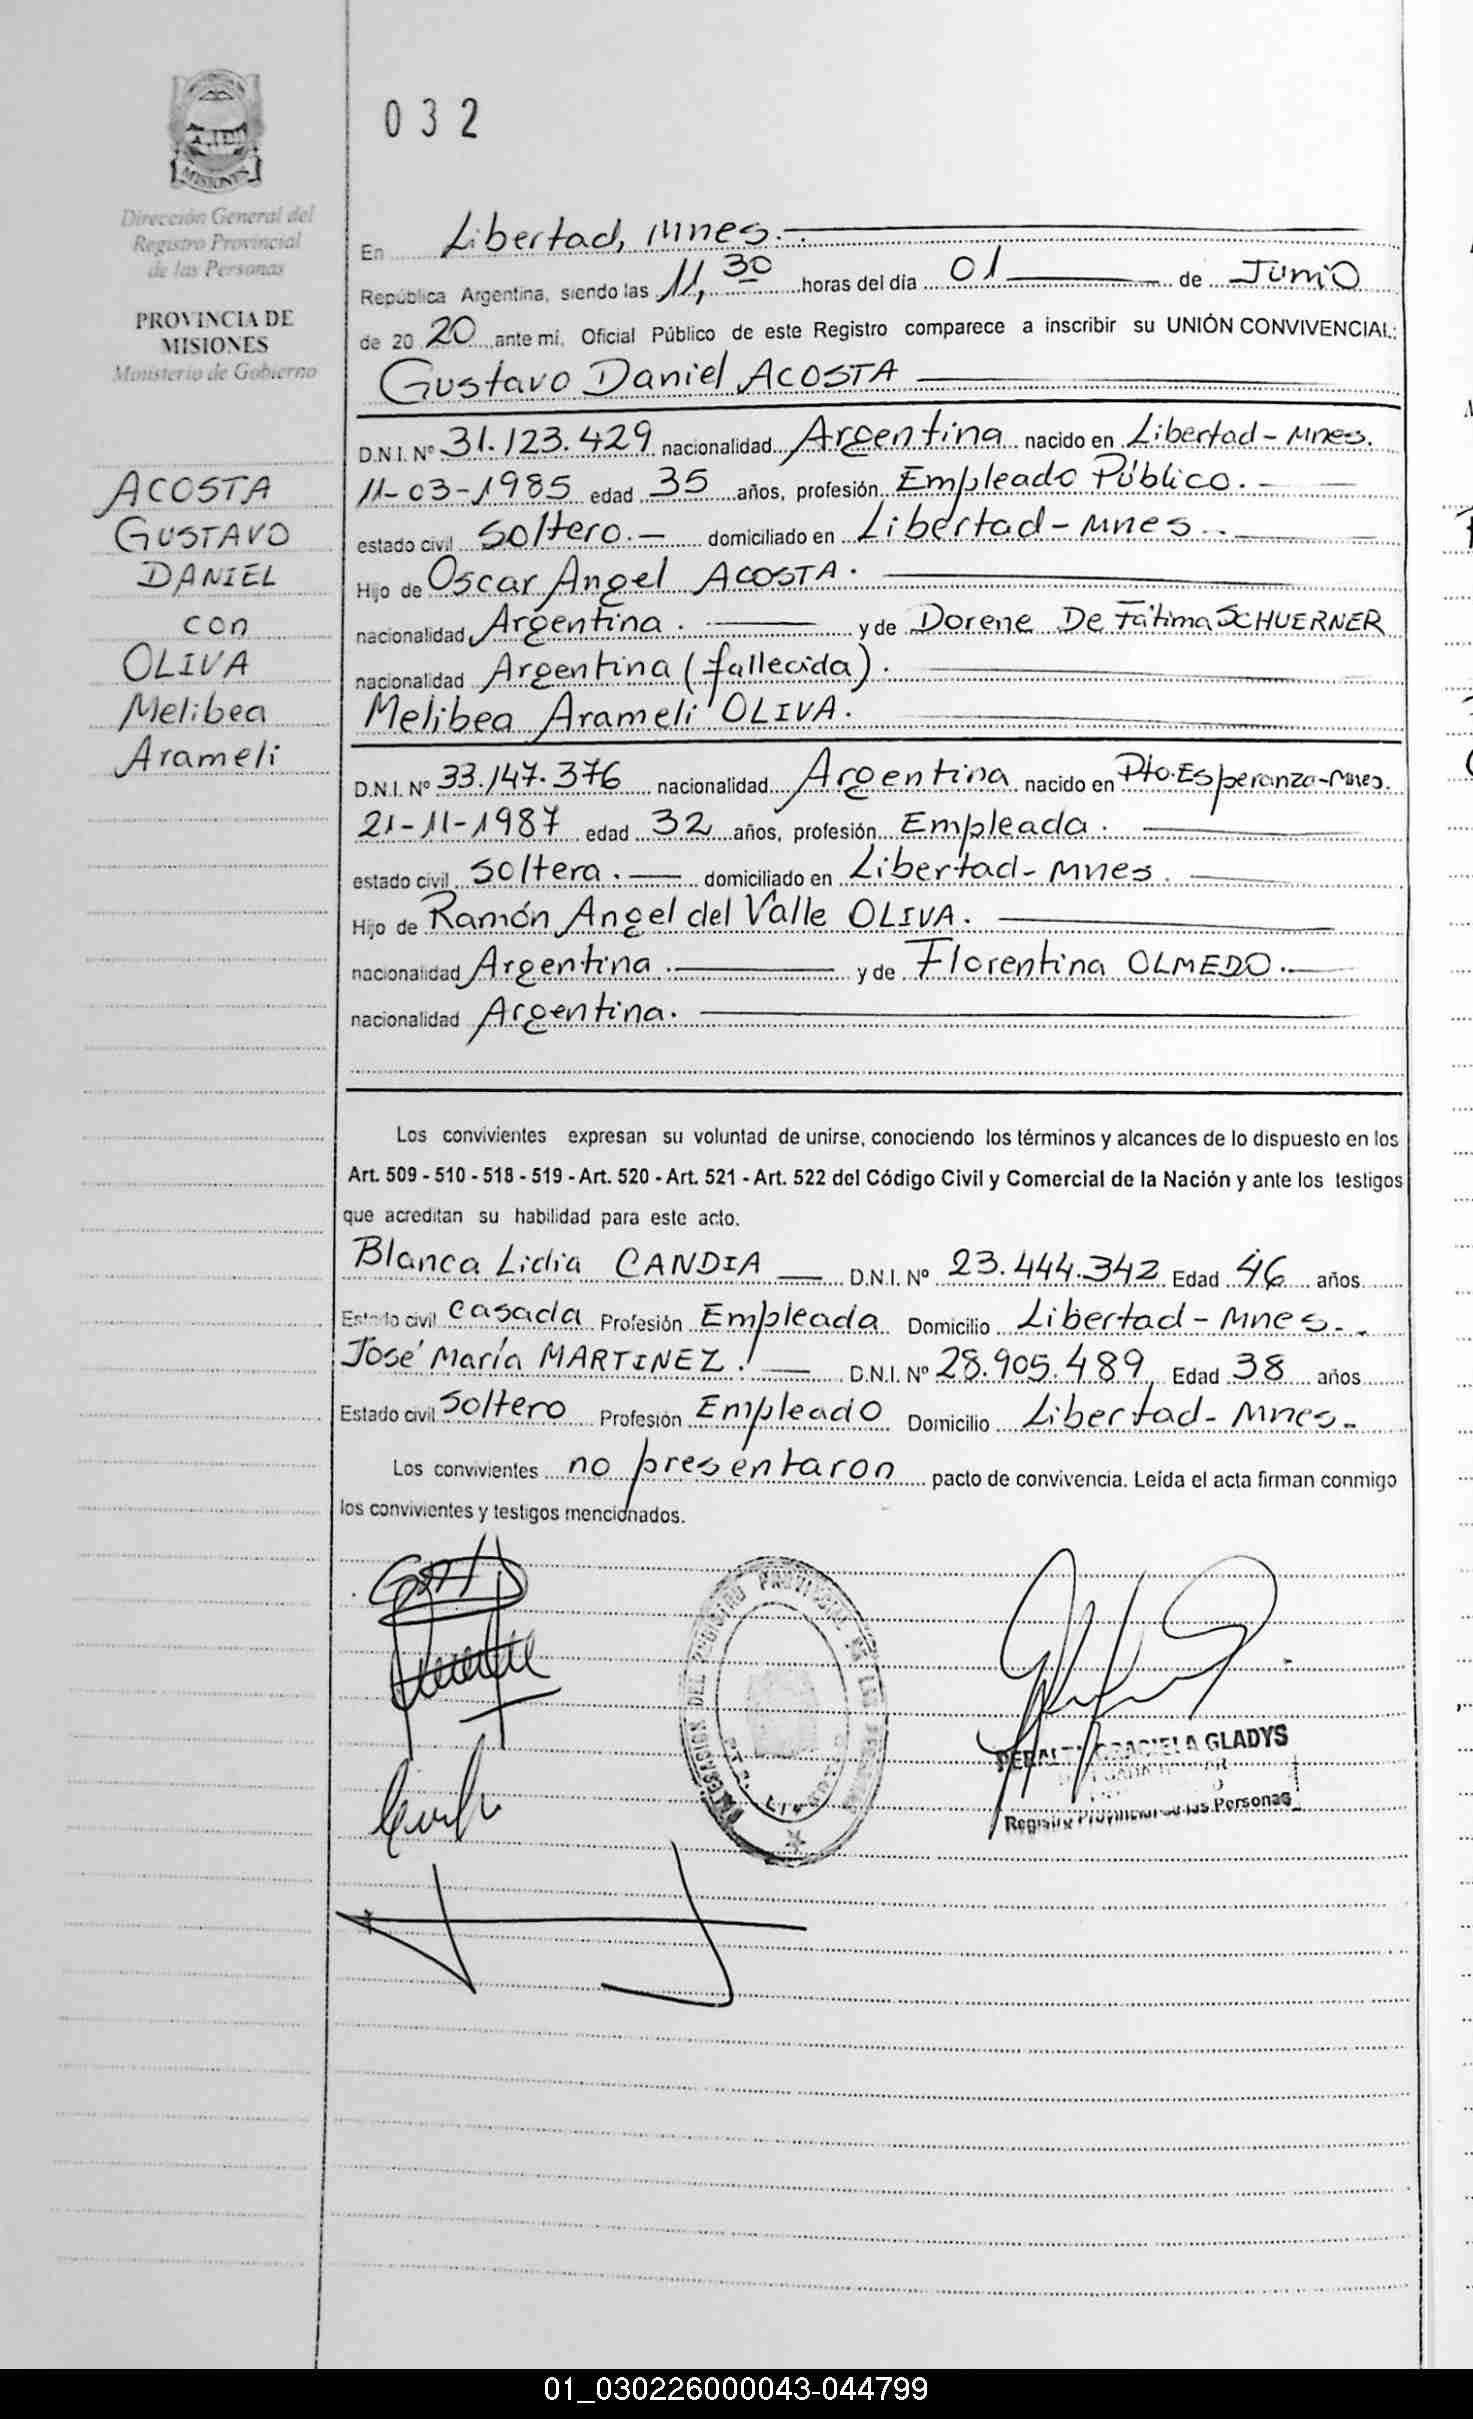 032
MISIONES
Dirección General del
Registro Provincial
de las Personas
PROVINCIA DE
MISIONES
Ministerio de Gobierno
ACOSTA
GUSTAVO
DANIEL
con
OLIVA
Melibea
Arameli
En Libertad, Mnes.-
República Argentina, siendo las 11,30 horas del día 01 de Junio
de 20 20 ante mí, Oficial Público de este Registro comparece a inscribir su UNIÓN CONVIVENCIAL:
Gustavo Daniel ACOSTA
D.N.I. Nº 31.123.429 nacionalidad Argentina nacido en Libertad-Mnes.
11-03-1985 edad 35 años, profesión Empleado Público.-
estado civil Soltero.- domiciliado en Libertad-Mnes.-
Hijo de Oscar Angel ACOSTA.
nacionalidad Argentina. y de Dorene De Fátima SCHUERNER
nacionalidad Argentina (fallecida).
Melibea Arameli OLIVA.
D.N.I. Nº 33.147.376 nacionalidad Argentina nacido en Pto.Esperanza-Mnes.
21-11-1987 edad 32 años, profesión Empleada.
estado civil Soltera.- domiciliado en Libertad-Mnes.
Hijo de Ramón Angel del Valle OLIVA.
nacionalidad Argentina. y de Florentina OLMEDO.-
nacionalidad Argentina.
Los convivientes expresan su voluntad de unirse, conociendo los términos y alcances de lo dispuesto en los
Art. 509 - 510 - 518 - 519 - Art. 520 - Art. 521 - Art. 522 del Código Civil y Comercial de la Nación y ante los testigos
que acreditan su habilidad para este acto.
Blanca Lidia CANDIA D.N.I. Nº 23.444.342 Edad 46 años
Estado civil casada Profesión Empleada Domicilio Libertad-Mnes.-
José María MARTINEZ.- D.N.I. Nº 28.905.489 Edad 38 años
Estado civil Soltero Profesión Empleado Domicilio Libertad-Mnes.-
Los convivientes no presentaron pacto de convivencia. Leída el acta firman conmigo
los convivientes y testigos mencionados.
DEL REGISTRO PROVINCIAL DE LAS
PERALTA GRACIELA GLADYS
Registro Provincial de las Personas
01_030226000043-044799